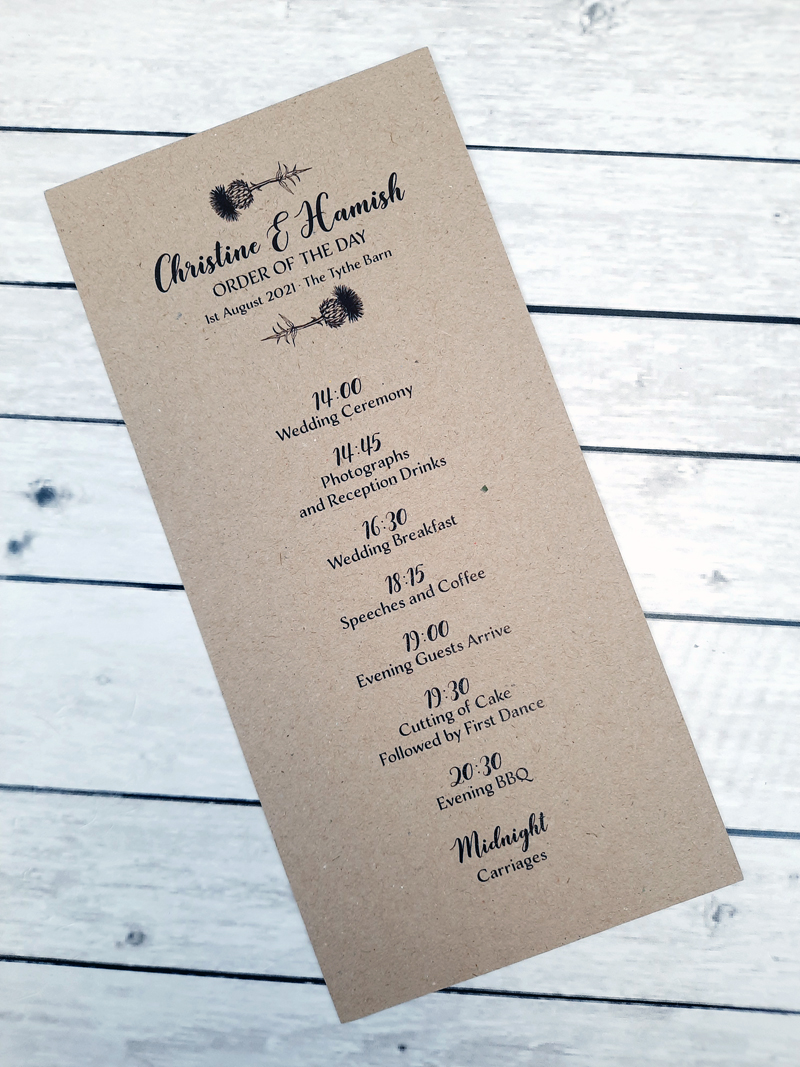 Christine & Hamish
ORDER OF THE DAY
1st August 2021 · The Tythe Barn
14:00
Wedding Ceremony
14:45
Photographs
and Reception Drinks
16:30
Wedding Breakfast
18:15
Speeches and Coffee
19:00
Evening Guests Arrive
19:30
Cutting of Cake
Followed by First Dance
20:30
Evening BBQ
Midnight
Carriages